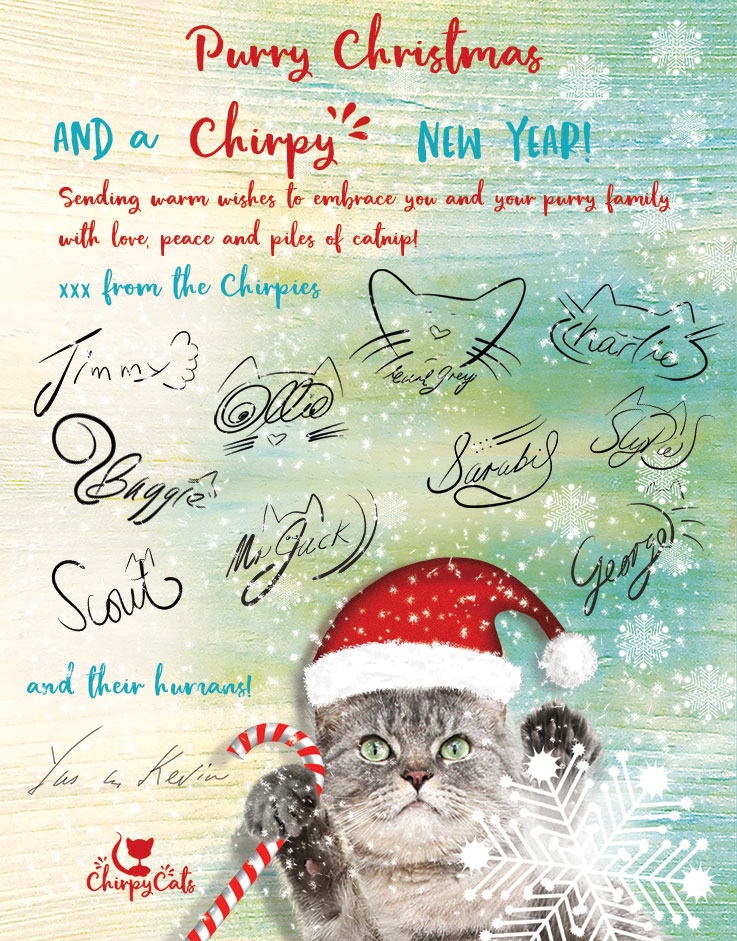 Purry Christmas
AND a Chirpy NEW YEAR!
Sending warm wishes to embrace you and your purry family
with love, peace and piles of catnip!
xxx from the Chirpies
Jimmy
Ollie
Earl Grey
Charlie
Baggie
Sarabi
Scout
Mr Jack
George
and their humans!
Yus Kevin
ChirpyCats